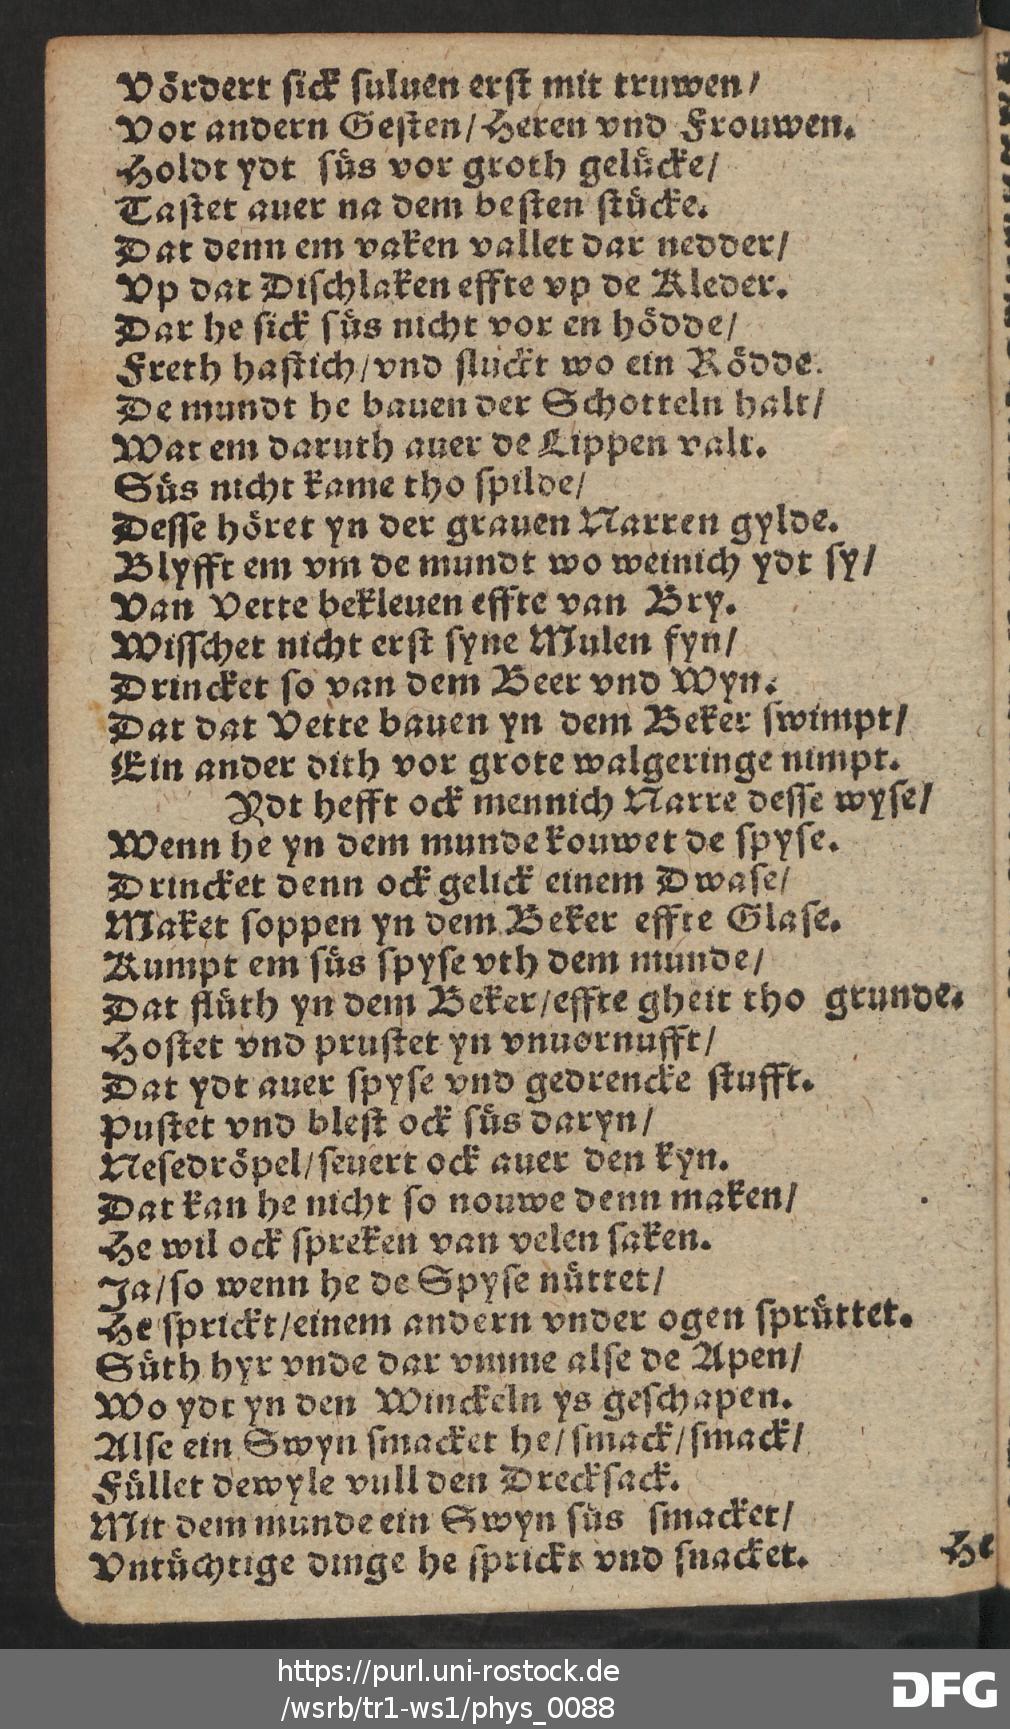 Vördert sick suluen erst mit truwen/
Vor andern Gesten/ Heren vnd Frouwen.
Holdt ydt süs vor groth gelücke/
Tastet auer na dem besten stücke.
Dat denn em vaken vallet dar nedder/
Vp dat Dischlaken effte vp de Kleder.
Dar he sick süs nicht vor en hödde/
Freth hastich/ vnd sluckt wo ein Rödde.
De mundt he bauen der Schotteln halt/
Wat em daruth auer de Lippen valt.
Süs nicht kame tho spilde/
Desse höret yn der grauen Narren gylde.
Blyfft em vm de mundt wo weinich ydt sy/
Van Vette bekleuen effte van Bry.
Wisschet nicht erst syne Mulen fyn/
Drincket so van dem Beer vnd Wyn.
Dat dat Vette bauen yn dem Beker swimpt/
Ein ander dith vor grote walgeringe nimpt.
Ydt hefft ock mennich Narre desse wyse/
Wenn he yn dem munde kouwet de spyse.
Drincket denn ock gelick einem Dwase/
Maket soppen yn dem Beker effte Glase.
Kumpt em süs spyse vth dem munde/
Dat flüth yn dem Beker/ effte gheit tho grunde.
Hostet vnd prustet yn vnuornufft/
Dat ydt auer spyse vnd gedrencke stufft.
Pustet vnd blest ock süs daryn/
Nesedröpel/ seuert ock auer den kyn.
Dat kan he nicht so nouwe denn maken/
He wil ock spreken van velen saken.
Ja/ so wenn he de Spyse nüttet/
He sprickt/ einem andern vnder ogen sprüttet.
Süth hyr vnde dar vmme alse de Apen/
Wo ydt yn den Winckeln ys geschapen.
Alse ein Swyn smacket he/ smack/ smack/
Füllet dewyle vull den Drecksack.
Mit dem munde ein Swyn süs smacket/
Vntüchtige dinge he sprickt vnd snacket.
He
https://purl.uni-rostock.de
/wsrb/tr1-ws1/phys_0088
DFG